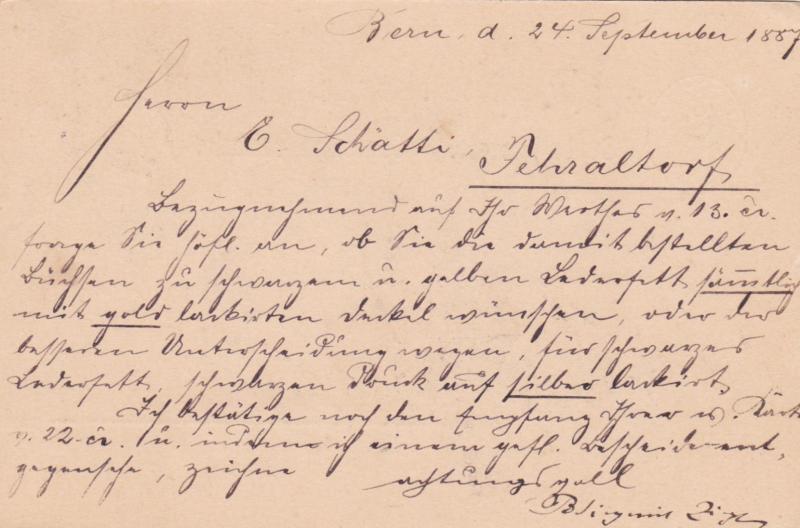 Bern, d. 24. September 1887
Herrn
E. Schätti, Fehraltorf
Bezugnehmend auf Ihr Werthes v. 13. cr.
frage Sie höfl. an, ob Sie die damit bestellten
Büchsen zu schwarzem u. gelben Lederfett sämmtlich
mit gold lackirten Deckel wünschen, oder der
besseren Unterscheidung wegen, für schwarzes
Lederfett, schwarzen Druck auf silber lackirt.
Ich bestätige noch den Empfang Ihrer w. Karte
v. 22. cr. u. indem ich einem gefl. Bescheide ent-
gegensehe, zeichne achtungsvoll